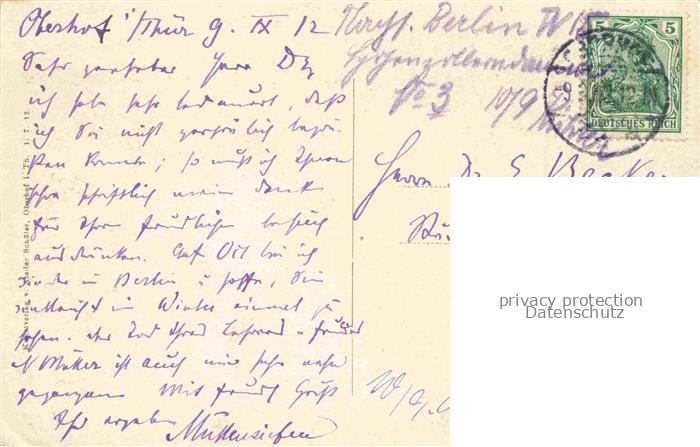 Oberhof i/Thür 9. IX 12
Sehr geehrter Herr Dr,
ich habe sehr bedauert, daß
ich Sie nicht persönlich begrü-
ßen konnte; so muß ich Ihnen
schon schriftlich meinen Dank
für Ihren freundlichen Besuch
ausdrücken. Auf Oct bin ich
wieder in Berlin u hoffe, Sie
vielleicht im Winter einmal zu
sehen. Der Tod Ihres Lehrers u Freundes
W Müller ist auch mir sehr nahe
gegangen Mit freundl Gruß
Ihr ergeben
Nachf. Berlin W
Hohenzollerndamm
No 3
10/9
DEUTSCHES REICH
5
Herrn Dr. E. Becker
Kunstverlag v. Schüler, Oberhof i. Th. 1. 7. 12.
privacy protection
Datenschutz